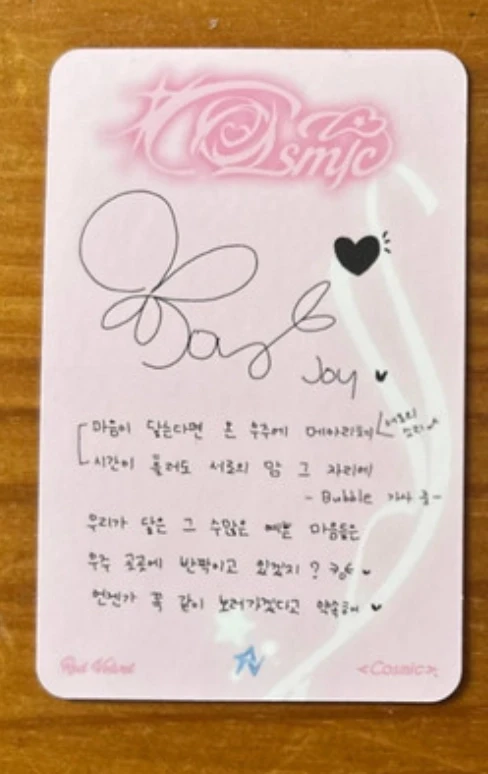 Cosmic
Joy
마음이 닿는다면 온 우주에 메아리쳐 서로의
시간이 흘러도 서로의 맘 그 자리에
- Bubble 가사 중 -
우리가 닿은 그 수많은 예쁜 마음들은
우주 곳곳에 반짝이고 있겠지?
언젠가 꼭 같이 놀러가겠다고 약속해
Red Velvet
<Cosmic>